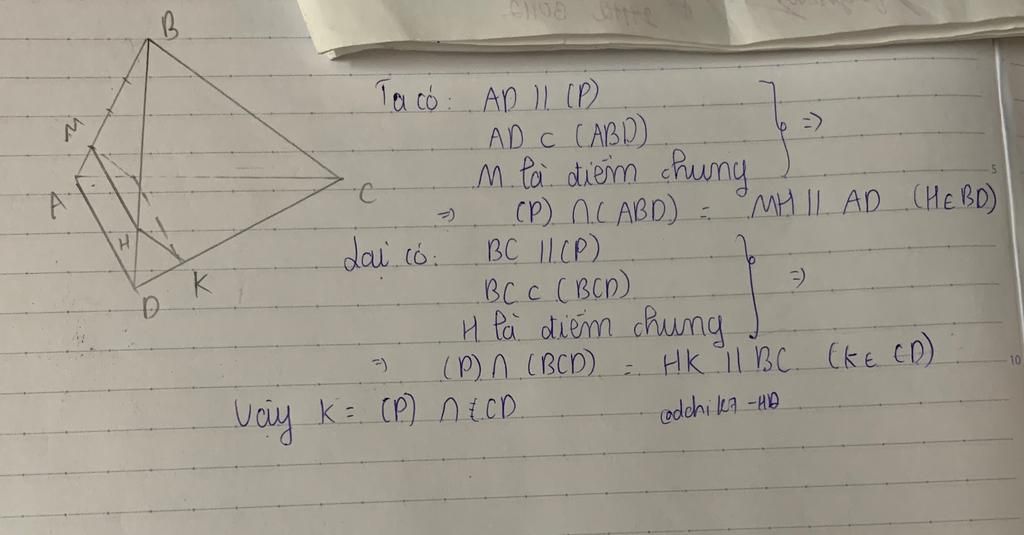 B
M
A
C
H
K
D
Ta có: AD || (P)
AD ⊂ (ABD)
M là điểm chung
} =>
=> (P) ∩ (ABD) = MH || AD (H∈BD)
Lại có: BC || (P)
BC ⊂ (BCD)
H là điểm chung
} =>
=> (P) ∩ (BCD) = HK || BC (K∈ CD)
Vậy K = (P) ∩ CD
5
10